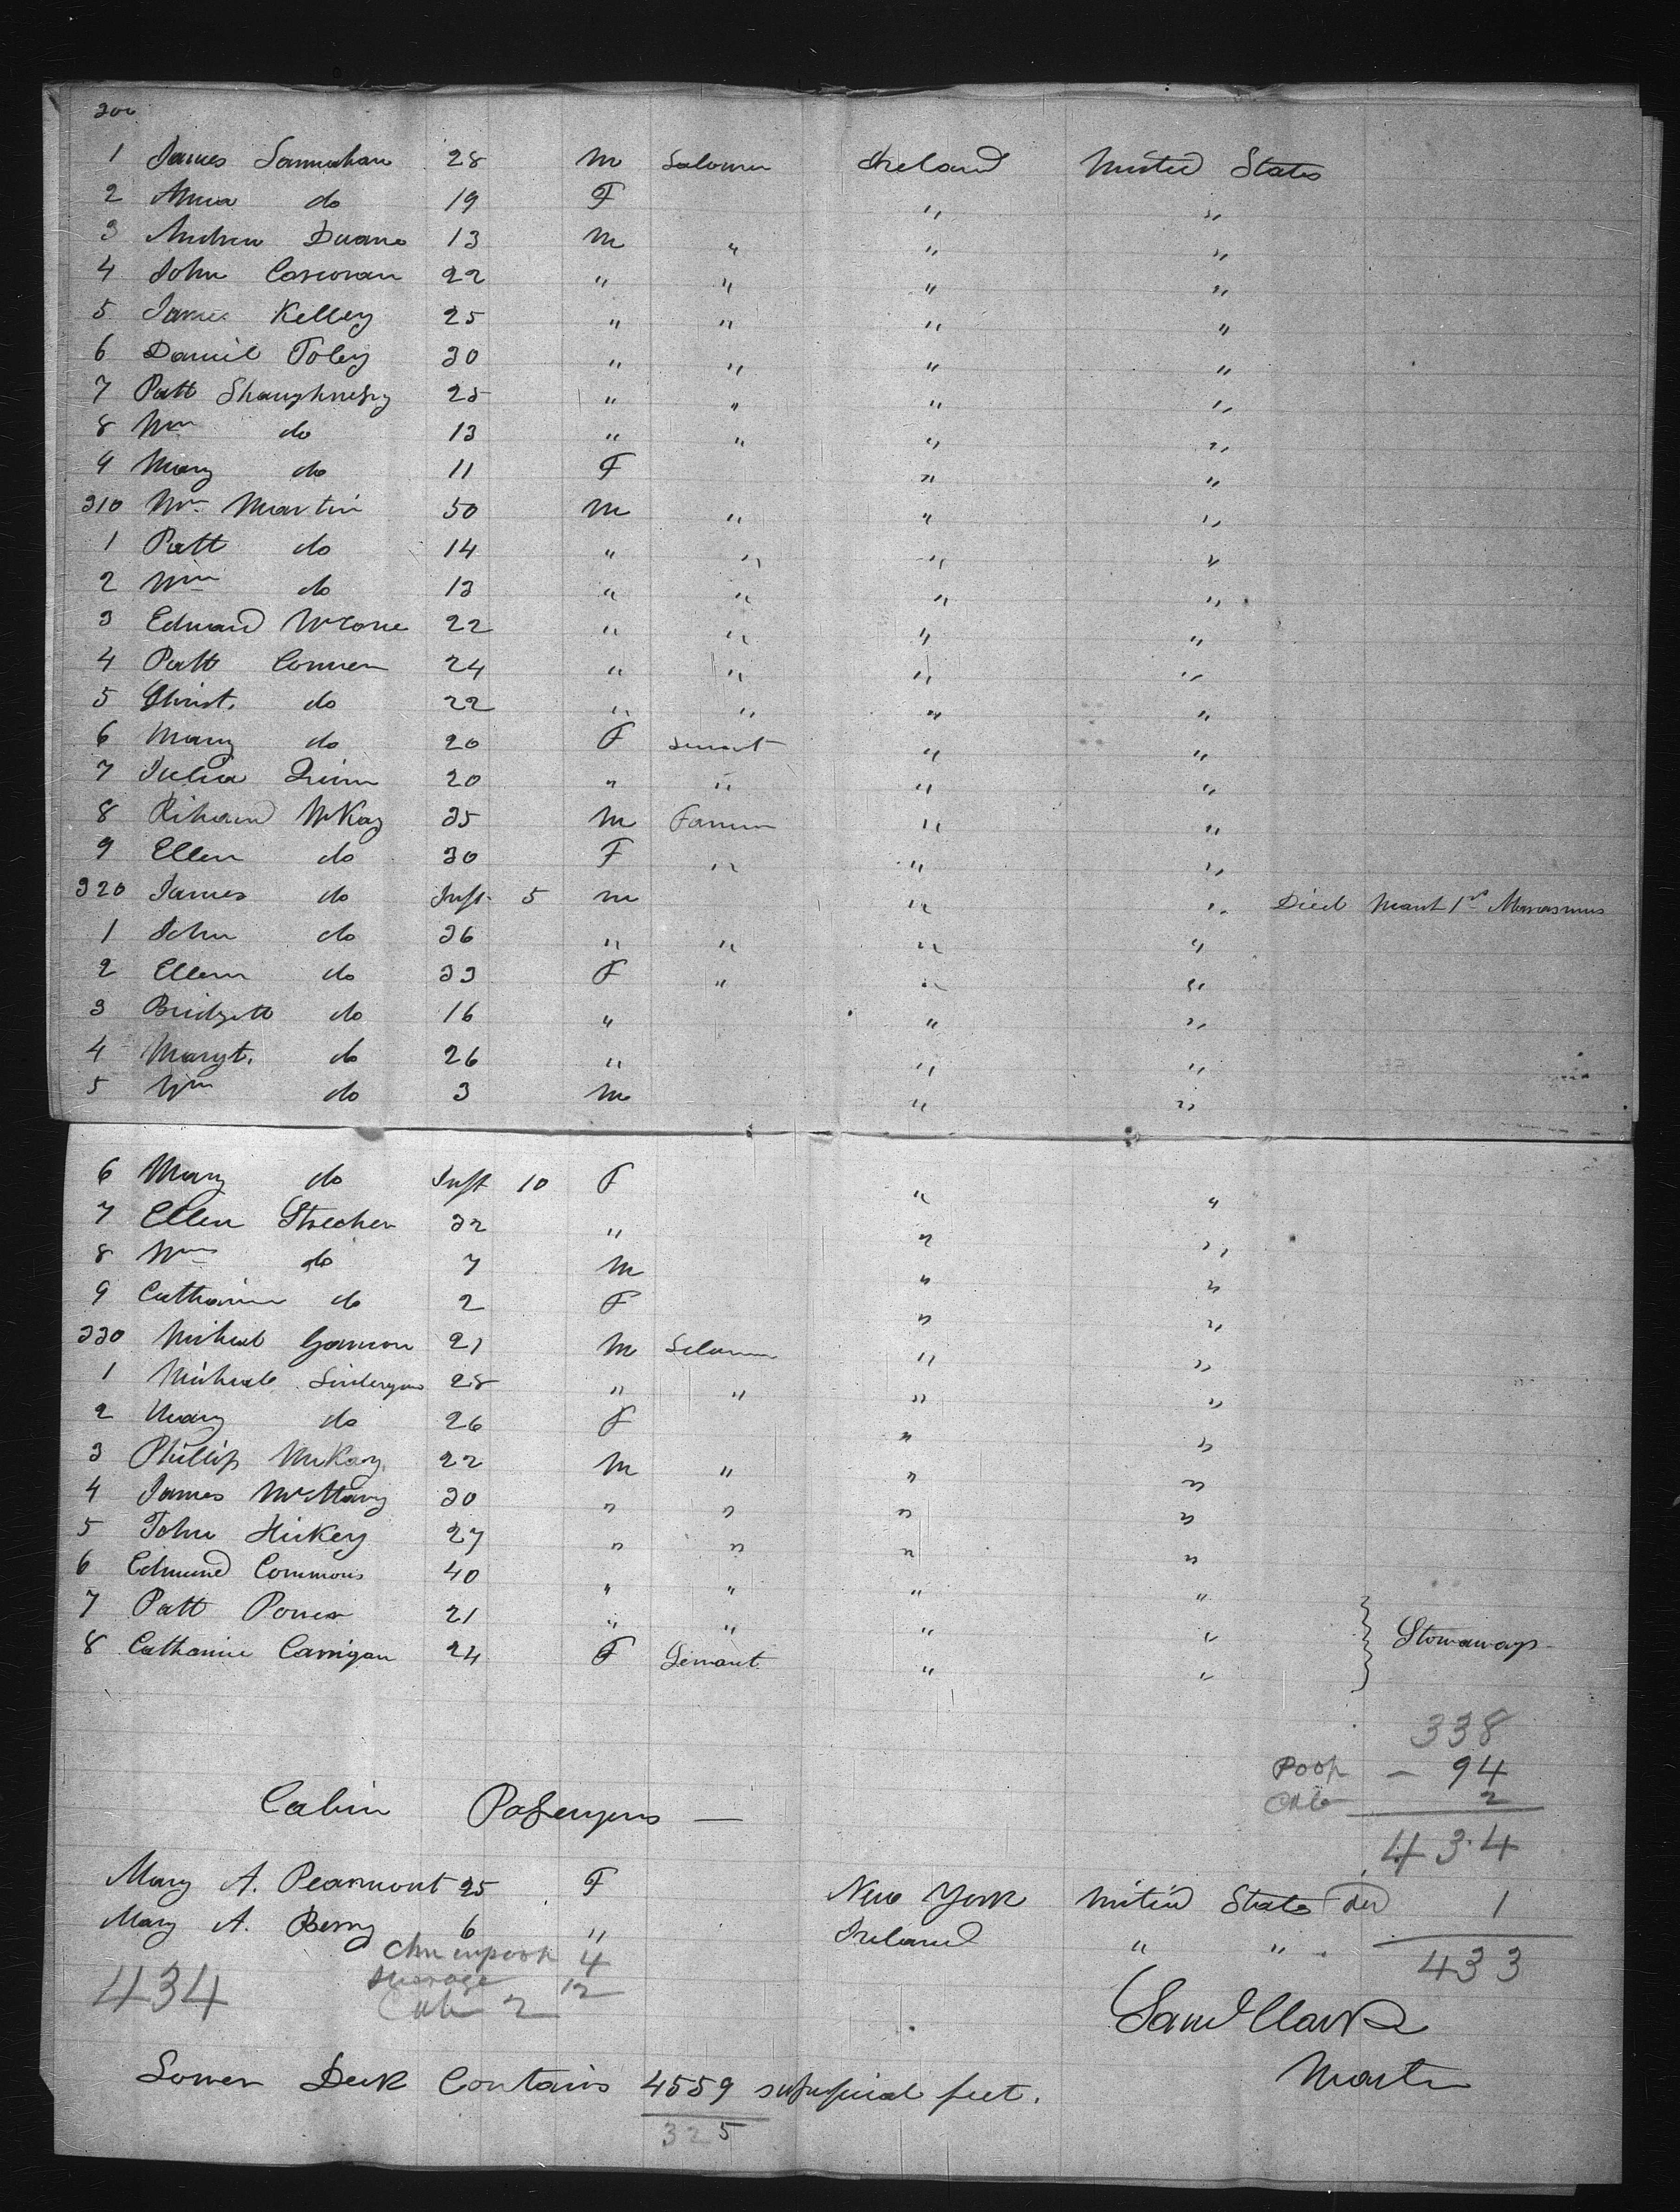 300
1 James Lannahan 28 M Laborer Ireland United States
2 Anna do 19 F " "
3 Andrew Duane 13 M " " "
4 John Corcoran 22 " " " "
5 James Kelley 25 " " " "
6 Daniel Foley 30 " " " "
7 Patt Shaughnessy 25 " " " "
8 Wm do 13 " " " "
9 Mary do 11 F " "
310 Wm Martin 50 M " " "
1 Patt do 14 " " " "
2 Wm do 13 " " " "
3 Edward 22 " " " "
4 Patt Conner 24 " " " "
5 Christ. do 22 " " " "
6 Mary do 20 F Servant " "
7 Julia Quinn 20 " " " "
8 Richard McKay 35 M Farmer " "
9 Ellen do 30 F " " "
320 James do Inft. 5 M " " Died March 1st Marasmus
1 John do 36 " " " "
2 Ellen do 33 F " " "
3 Bridgett do 16 " " "
4 Margt. do 26 " " "
5 Wm do 3 M " "
6 Mary do Inft 10 F " "
7 Ellen 32 " " "
8 Wm do 7 M " "
9 Catharine do 2 F " "
330 Michael Gannon 21 M Laborer " "
1 Michael 28 " " " "
2 Mary do 26 F " "
3 Phillip McKay 22 M " " "
4 James 30 " " " "
5 John Hickey 27 " " " "
6 Edmund Commons 40 " " " "
7 Patt Power 21 " " " "
8 Catharine Carrigan 24 F Servant " "
} Stowaways
338
Poop - 94
Cab 2
434
Cabin Passengers —
Mary A. Pearmont 25 F New York United States
Mary A. Berry 6 " Ireland " "
1
433
4
12
Cab 2
434
Saml Clark
Master
Lower Deck Contains 4559 superficial feet.
325